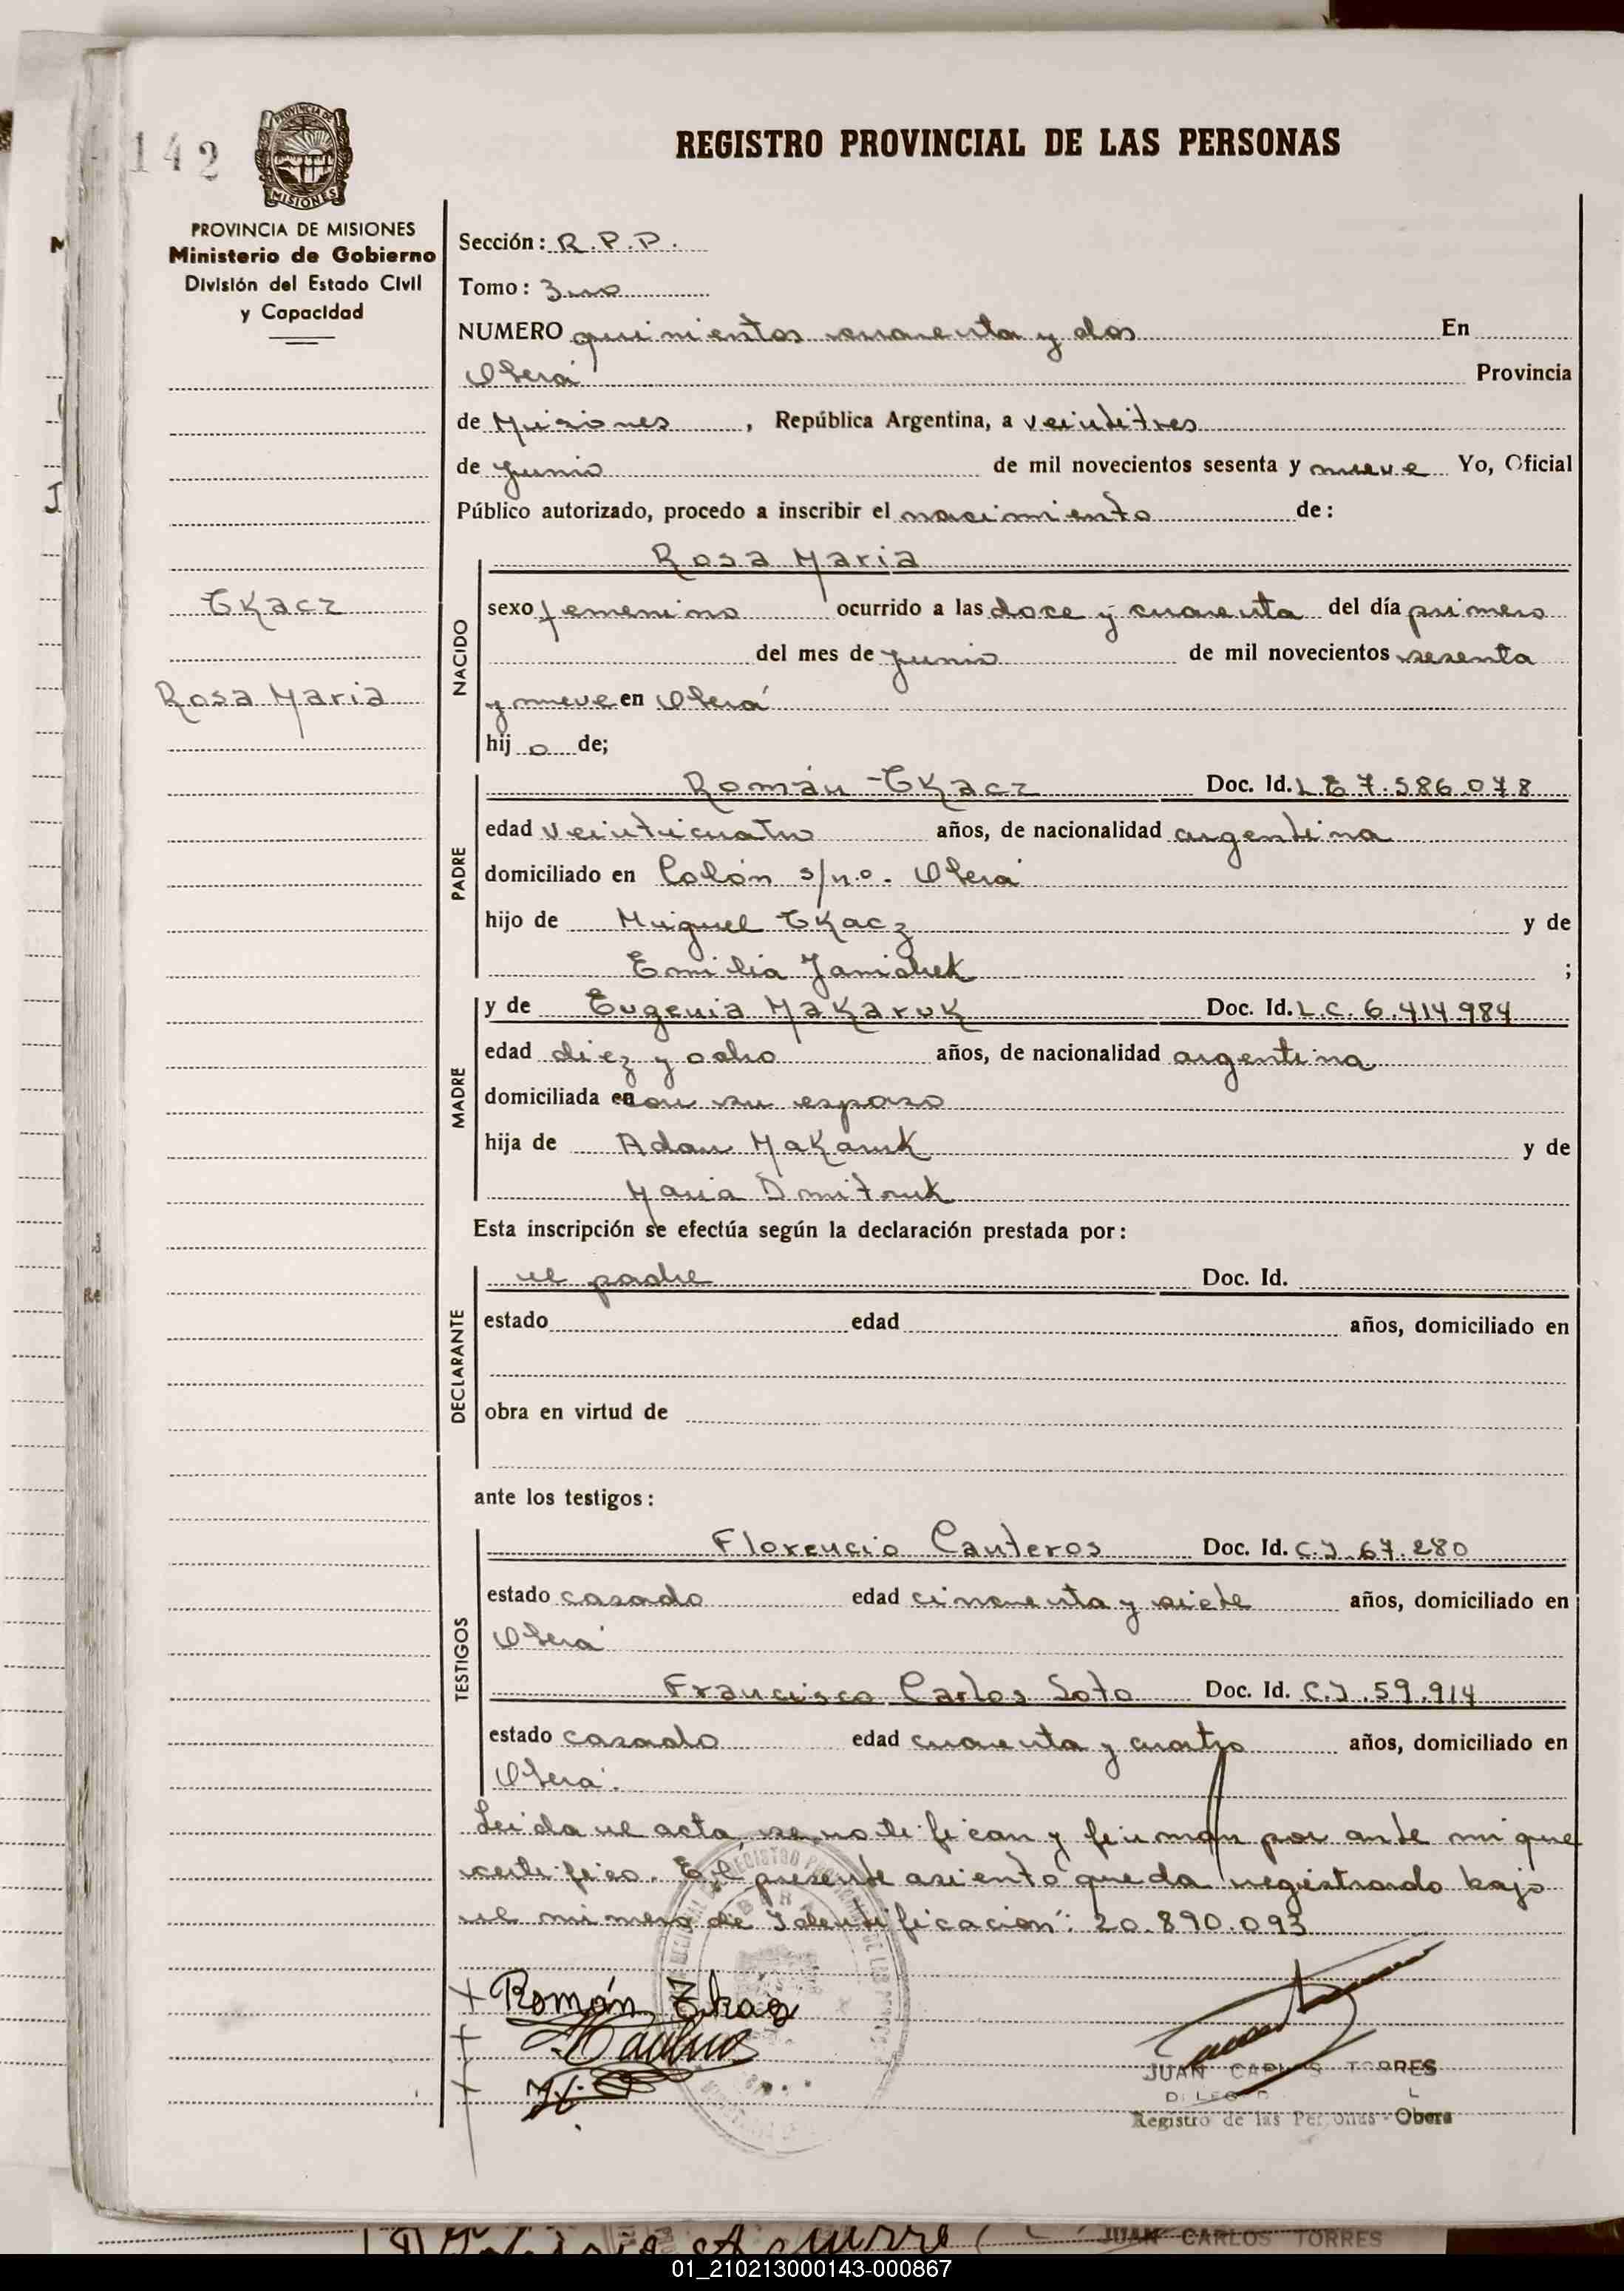 142
PROVINCIA DE MISIONES
Ministerio de Gobierno
División del Estado Civil
y Capacidad
Tkacz
Rosa Maria
REGISTRO PROVINCIAL DE LAS PERSONAS
Sección: R.P.P.
Tomo: 3ro
NUMERO quinientos cuarenta y dos En
Oberá Provincia
de Misiones, República Argentina, a veintitres
de junio de mil novecientos sesenta y nueve Yo, Oficial
Público autorizado, procedo a inscribir el nacimiento de:
NACIDO
Rosa Maria
sexo femenino ocurrido a las doce y cuarenta del día primero
del mes de junio de mil novecientos sesenta
y nueve en Oberá
hij o de;
PADRE
Román Tkacz Doc. Id. L E 7.586.078
edad veinticuatro años, de nacionalidad argentina
domiciliado en Colón s/n.o. Oberá
hijo de Miguel Tkacz y de
Emilia Janichek ;
MADRE
y de Eugenia Makaruk Doc. Id. L.C. 6.414.984
edad diez y ocho años, de nacionalidad argentina
domiciliada en con su esposo
hija de Adan Makaruk y de
Maria Dmitruk
Esta inscripción se efectúa según la declaración prestada por:
DECLARANTE
el padre Doc. Id.
estado edad años, domiciliado en
obra en virtud de
ante los testigos:
TESTIGOS
Florencio Canteros Doc. Id. C.I. 67.280
estado casado edad cincuenta y siete años, domiciliado en
Oberá
Francisco Carlos Soto Doc. Id. C.I. 59.914
estado casado edad cuarenta y cuatro años, domiciliado en
Oberá.
Leida el acta, se notifican y firman por ante mi que
certifico. El presente asiento queda registrado bajo
el número de Identificación: 20.890.093
Román Tkacz
JUAN CARLOS TORRES
Registro de las Personas - Obera
JUAN CARLOS TORRES
01_210213000143-000867